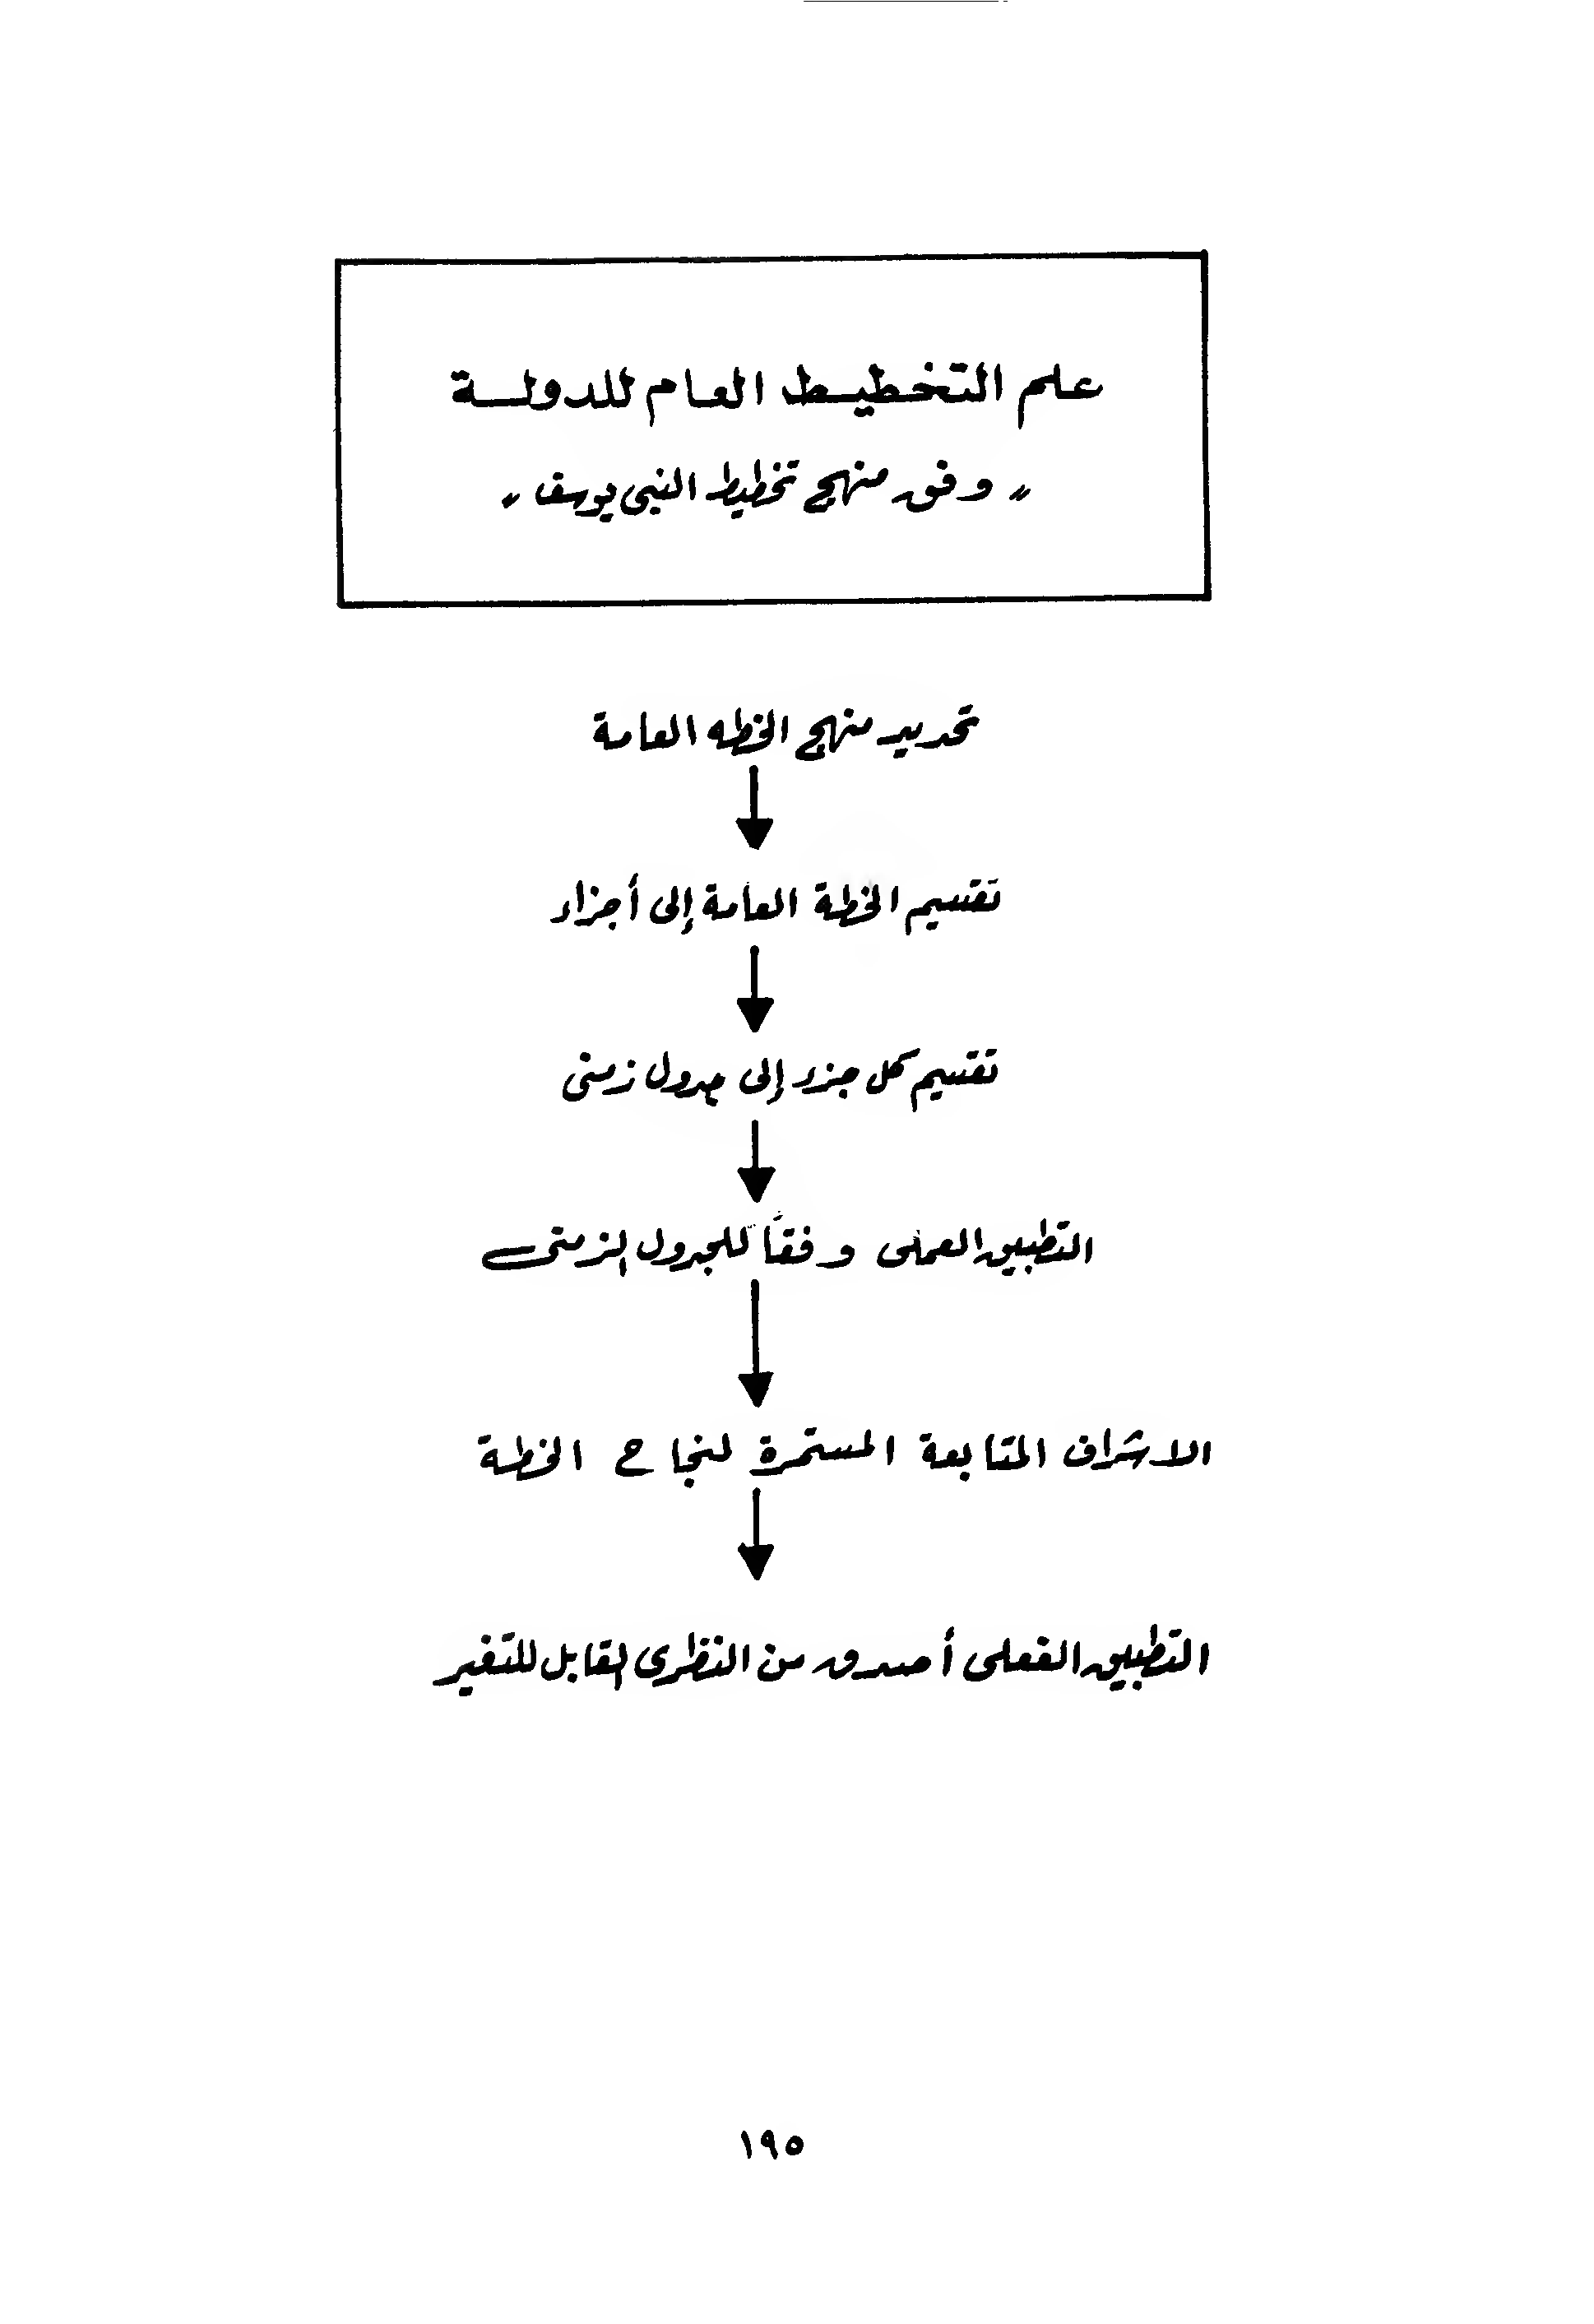 علم التخطيط العام للدولة
" وفق منهج تخطيط النبى يوسف "
تحديد منهج الخطه العامة
تقسيم الخطة العامة إلى أجزاء
تقسيم كل جزء إلى جدول زمنى
التطبيق العملى وفقاً للجدول الزمنى
الاشراف المتابعة المستمرة لنجاح الخطة
التطبيق الفعلى أصدق من النظرى القابل للتغير
١٩٥